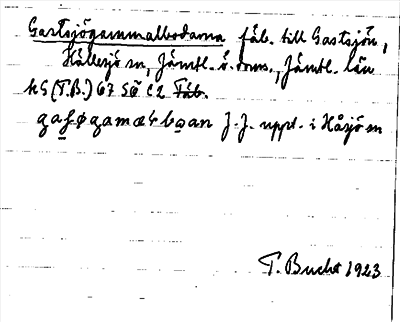 Gastsjögammalbodarna fäb. till Gastsjön,
Hällesjö sn, Jämtl. ö. dms., Jämtl. län
KS (T.B.) 67 SÖ C2 Fäb.
J.J. uppt. i Håsjö sn
T. Bucht 1923